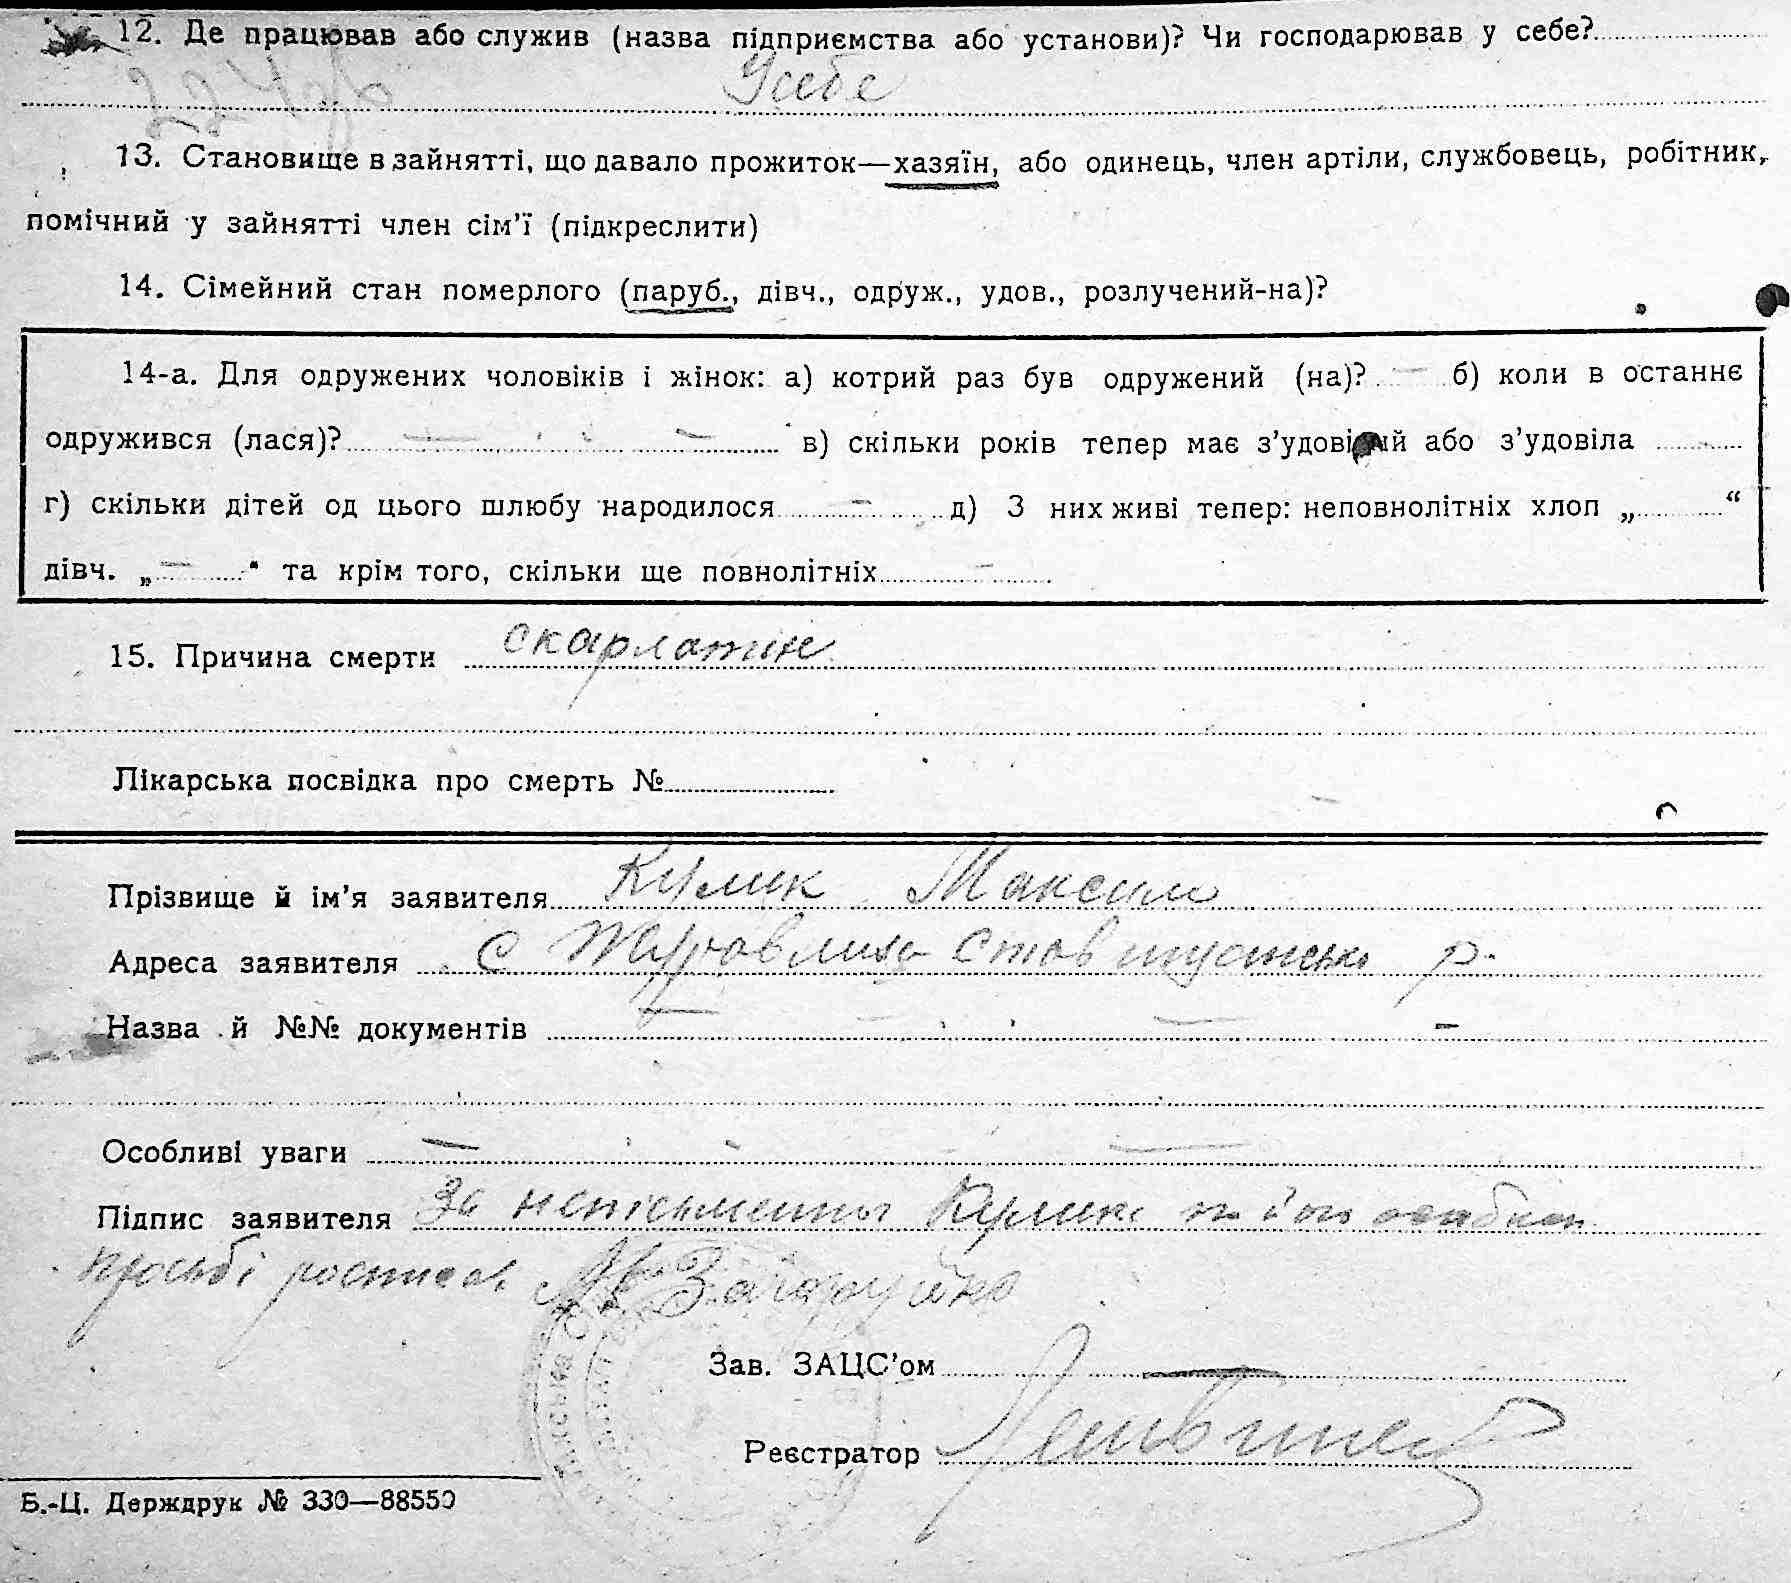 12. Де працював або служив (назва підприємства або установи)? Чи господарював у себе?
Усебе
13. Становище в зайнятті, що давало прожиток—хазяїн, або одинець, член артіли, службовець, робітник,
помічний у зайнятті член сім'ї (підкреслити)
14. Сімейний стан померлого (паруб., дівч., одруж., удов., розлучений-на)?
14-а. Для одружених чоловіків і жінок: а) котрий раз був одружений (на)? — б) коли в останнє
одружився (лася)? — — в) скільки років тепер має з'удовілий або з'удовіла
г) скільки дітей од цього шлюбу народилося — д) З них живі тепер: неповнолітніх хлоп „ “
дівч. „ — “ та крім того, скільки ще повнолітніх —
15. Причина смерти скарлатин
Лікарська посвідка про смерть №
Прізвище й ім'я заявителя Кулик Максим
Адреса заявителя с Журавлиха Ставищанськ р.
Назва й №№ документів — — —
Особливі уваги — — —
Підпис заявителя За непісьменны Кулик по його
просьбі росписав
Зав. ЗАЦС'ом —
Реєстратор
Б.-Ц. Держдрук № 330—88550